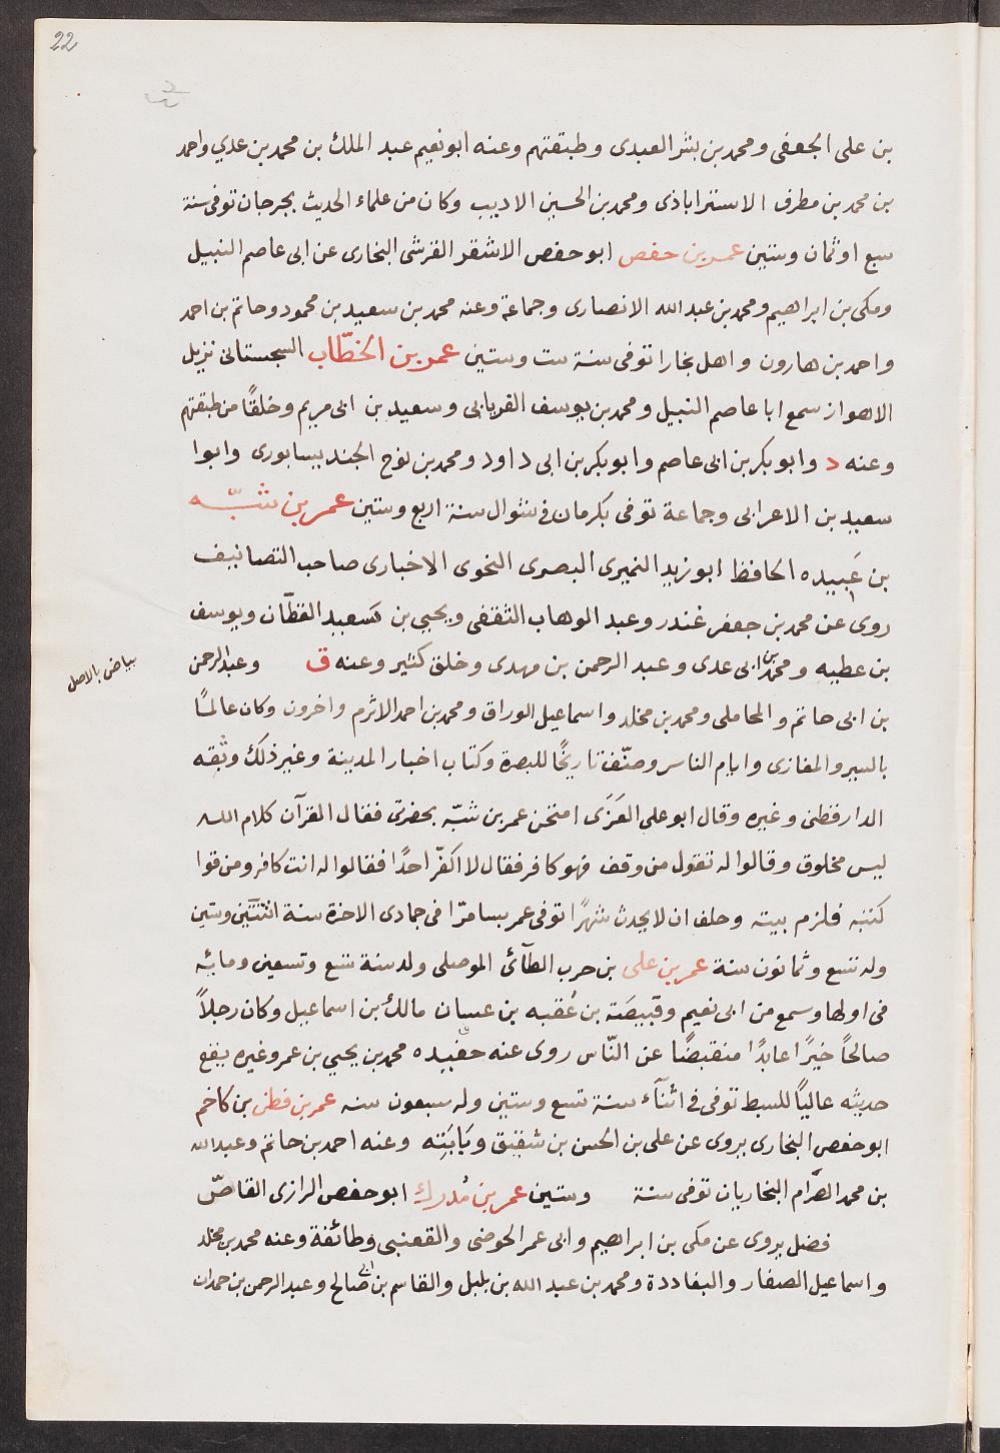 22
بن على الجعفى ومحمد بن بشر العبدى وطبقتهم وعنه ابو نعيم عبد الملك بن محمد بن عدي واحمد
بن محمد بن مطرف الاستراباذى ومحمد بن الحسين الاديب وكان من علماء الحديث بجرجان توفى سنة
سبع او ثمان وستين عمر بن حفص ابو حفص الاشقر القرشى البخارى عن ابى عاصم النبيل
ومكى بن ابراهيم ومحمد بن عبد الله الانصارى وجماعة وعنه محمد بن سعيد بن محمود وحاتم بن احمد
واحمد بن هارون واهل بخارا توفى سنة ست وستين عمر بن الخطّاب السجستانى نزيل
الاهواز سمع ابا عاصم النبيل ومحمد بن يوسف الفريابى وسعيد بن ابى مريم وخلقًا من طبقتهم
وعنه د وابو بكر بن ابى عاصم وابو بكر بن ابى داود ومحمد بن نوح الجنديسابورى وابوا
سعيد بن الاعرابى وجماعة توفى بكرمان فى شوال سنة اربع وستين عمر بن شبّه
بن عَبيده الحافظ ابو زيد النميرى البصرى النحوى الاخبارى صاحب التصانيف
روى عن محمد بن جعفر غندر وعبد الوهاب الثقفى ويحيى بن سَعييد القطّان ويوسف
بن عطيه ومحمد بن ابى عدى وعبد الرحمن بن مهدى وخلق كثير وعنه ق وعبد الرحمن
بياض بالاصل
بن ابى حاتم والمحاملى ومحمد بن مخلد واسماعيل الوراق ومحمد بن احمد الاثرم واخرون وكان عالمًا
بالسير والمغازى وايام الناس وصنّف تاريخًا للبصرة وكتاب اخبار المدينة وغير ذلك وثّقه
الدارقطنى وغيره وقال ابو على العَنَزَى امتحن عمر بن شبّه بحضرتى فقال القرآن كلام الله
ليس مخلوق وقالوا له تقول من وقف فهو كافر فقال لا اكفّر احدًا فقالوا له انت كافر ومزقوا
كتبه فلزم بيته وحلف ان لا يحدث شهرًا توفى عمر بسامرّا فى جمادى الاخرة سنة اثنتين وستين
وله تسع وثمانون سنة عمر بن على بن حرب الطآئى الموصلى ولد سنة تسع وتسعين ومائه
فى اولها وسمع من ابى نعيم وقبيصَة بن عُقبه بن غسان مالك بن اسماعيل وكان رجلاً
صالحًا خيّرًا عابدًا منقبضًا عن النّاس روى عنه حفيده محمد بن يحيى بن عمر وغيره يقع
حديثه عاليًا للسبط توفى فى اثنآء سنة تسع وستين وله سبعون سنه عمر بن فطن بن كاخم
ابو حفص البخارى يروى عن على بن الحسن بن شقيق وبَابَتِه وعنه احمد بن حاتم وعبد الله
بن محمد الصّرام البخاريان توفى سنة وستين عمر بن مُدرك ابو حفص الرازى القاصّ
فضل يروى عن مكى بن ابراهيم وابى عمر الحوضى والقعنبى وطائفة وعنه محمد بن مخلد
واسماعيل الصفار والبغاددة ومحمد بن عبد الله بن بلبل والقاسم بن ابى صالح وعبد الرحمن بن حمدان